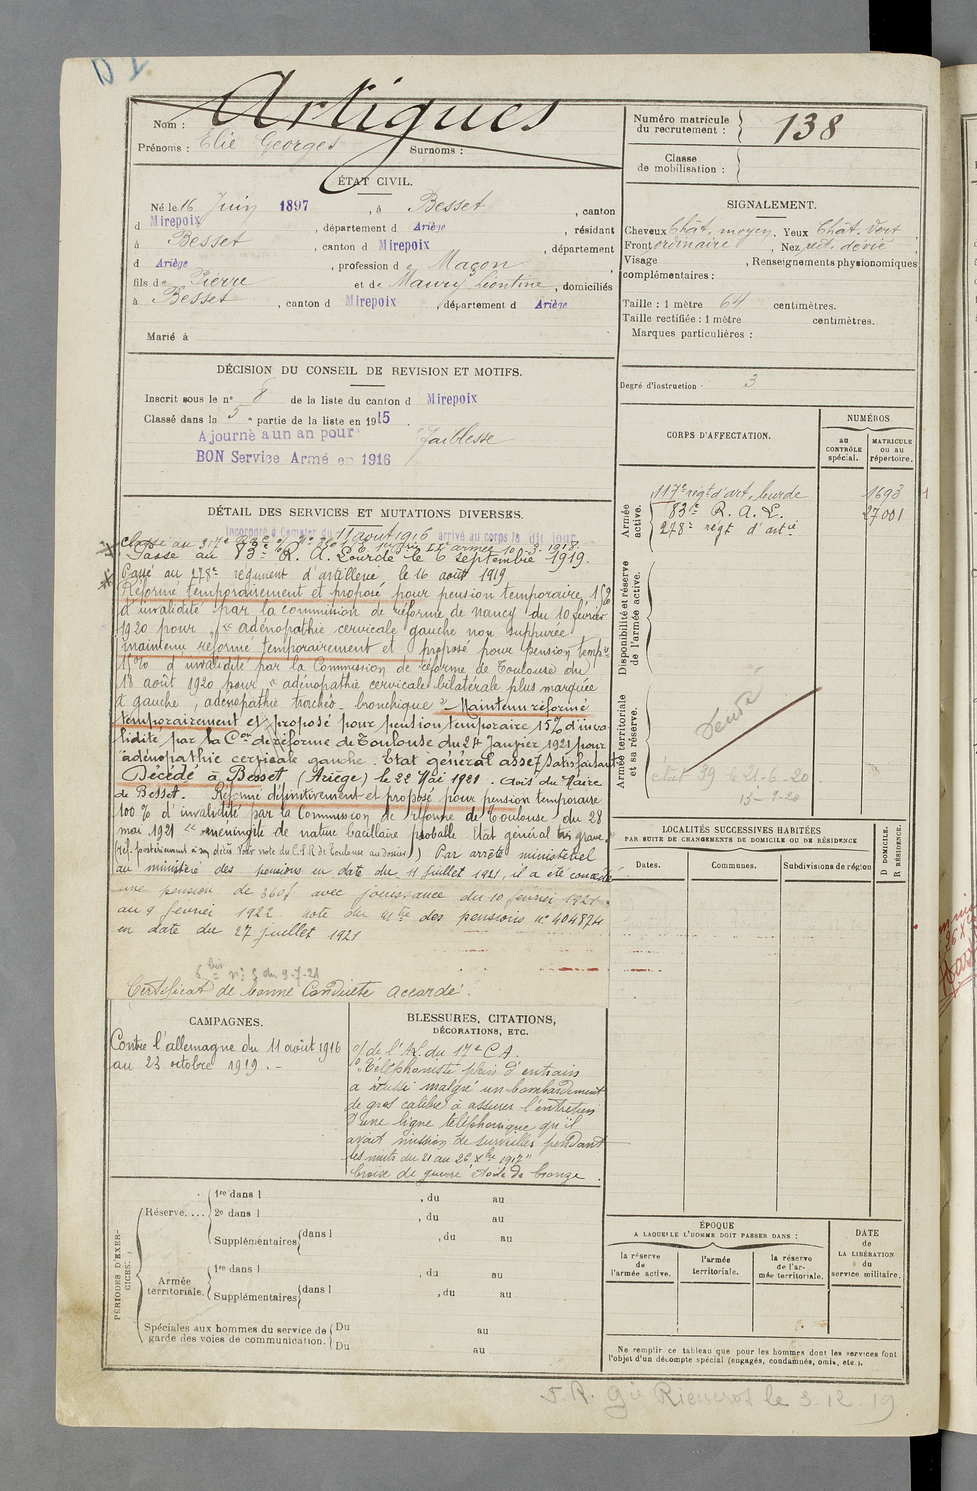 Nom : Artigues
Prénoms : Elie Georges Surnoms :
Numéro matricule du recrutement : 138
Classe de mobilisation :
ÉTAT CIVIL.
Né le 16 Juin 1897, à Besset, canton
d Mirepoix, département d Ariège, résidant
à Besset, canton d Mirepoix, département
d Ariège, profession de Maçon,
fils de Pierre et de Maury Léontine, domiciliés
à Besset, canton d Mirepoix, département d Ariège
Marié à
SIGNALEMENT.
Cheveux Chât. moyen, Yeux Chât. Vert,
Front ordinaire, Nez rect. dévié
Visage , Renseignements physionomiques
complémentaires :
Taille : 1 mètre 64 centimètres.
Taille rectifiée : 1 mètre centimètres.
Marques particulières :
Degré d'instruction · 3
DÉCISION DU CONSEIL DE REVISION ET MOTIFS.
Inscrit sous le n° 8 de la liste du canton d Mirepoix
Classé dans la 5 e partie de la liste en 1915.
Ajourné a un an pour faiblesse
BON Service Armé en 1916
CORPS D'AFFECTATION.
NUMÉROS
au CONTRÔLE spécial.
MATRICULE OU AU répertoire.
Armée active.
117e régt d'art. lourde 1693
83e R. A. L. 27001
278e régt d'artie
Disponibilité et réserve de l'armée active.
Armée territoriale et sa réserve.
état 39 le 21-6-20
DÉTAIL DES SERVICES ET MUTATIONS DIVERSES.
Incorporé à Compter du 11 août 1916 arrivé au corps le dit jour
Passé au 83e R. A. Lourde le 6 septembre 1919.
Passé au 278e régiment d'artillerie le 16 août 1919
Réformé temporairement et proposé pour pension temporaire 15%
d'invalidité par la commission de réforme de nancy du 10 février
1920 pour, « adénopathie cervicale gauche non suppurée
Maintenu réformé temporairement et proposé pour pension tempre
15% d'invalidité par la Commission de réforme de Toulouse du
18 août 1920 pour « adénopathie cervicale bilatérale plus marquée
à gauche, adénopathie trachéo-bronchique » Maintenu réformé
temporairement et proposé pour pension temporaire 15% d'inva-
lidité par la Con de réforme de Toulouse du 24 Janvier 1921 pour
"adénopathie cervicale gauche. Etat général assez satisfaisant
Décédé à Besset (Ariège) le 22 Mai 1921. Avis du Maire
de Besset. Réformé définitivement et proposé pour pension temporaire
100% d'invalidité par la Commission de réforme de Toulouse du 28
mai 1921 "méningite de nature bacillaire probable. Etat général très grave."
(réf. postérieurement à son décès Voir note du C.S.R. de Toulouse au dossier) Par arrêté ministériel
au ministère des pensions en date du 11 juillet 1921, il a été concédé
une pension de 360f avec jouissance du 10 février 1921
au 9 février 1922. note du Mtre des pensions n° 404874
en date du 27 juillet 1921
Certificat de bonne Conduite accordé.
LOCALITÉS SUCCESSIVES HABITÉES
PAR SUITE DE CHANGEMENTS DE DOMICILE OU DE RÉSIDENCE
Dates. Communes. Subdivisions de région
D DOMICILE.
R RÉSIDENCE.
CAMPAGNES.
Contre l'allemagne du 11 août 1916
au 23 octobre 1919. -
BLESSURES, CITATIONS,
DÉCORATIONS, ETC.
o/ de l'AL du 17e C.A.
"Téléphoniste plein d'entrain
a réussi malgré un bombardement
de gros calibre à assurer l'entretien
d'une ligne téléphonique qu'il
avait mission de surveiller pendant
les nuits du 21 au 26 Xbre 1917"
Croix de guerre étoile de bronze.
PÉRIODES D'EXERCICES.
Réserve....
1re dans l , du au
2e dans l , du au
Supplémentaires dans l , du au
Armée territoriale.
1re dans l , du au
Supplémentaires dans l , du au
Spéciales aux hommes du service de garde des voies de communication.
Du au
Du au
ÉPOQUE
A LAQUELLE L'HOMME DOIT PASSER DANS :
la réserve de l'armée active.
l'armée territoriale.
la réserve de l'armée territoriale.
DATE de LA LIBÉRATION du service militaire.
Ne remplir ce tableau que pour les hommes dont les services font
l'objet d'un décompte spécial (engagés, condamnés, omis, etc.).
le 3.12.19